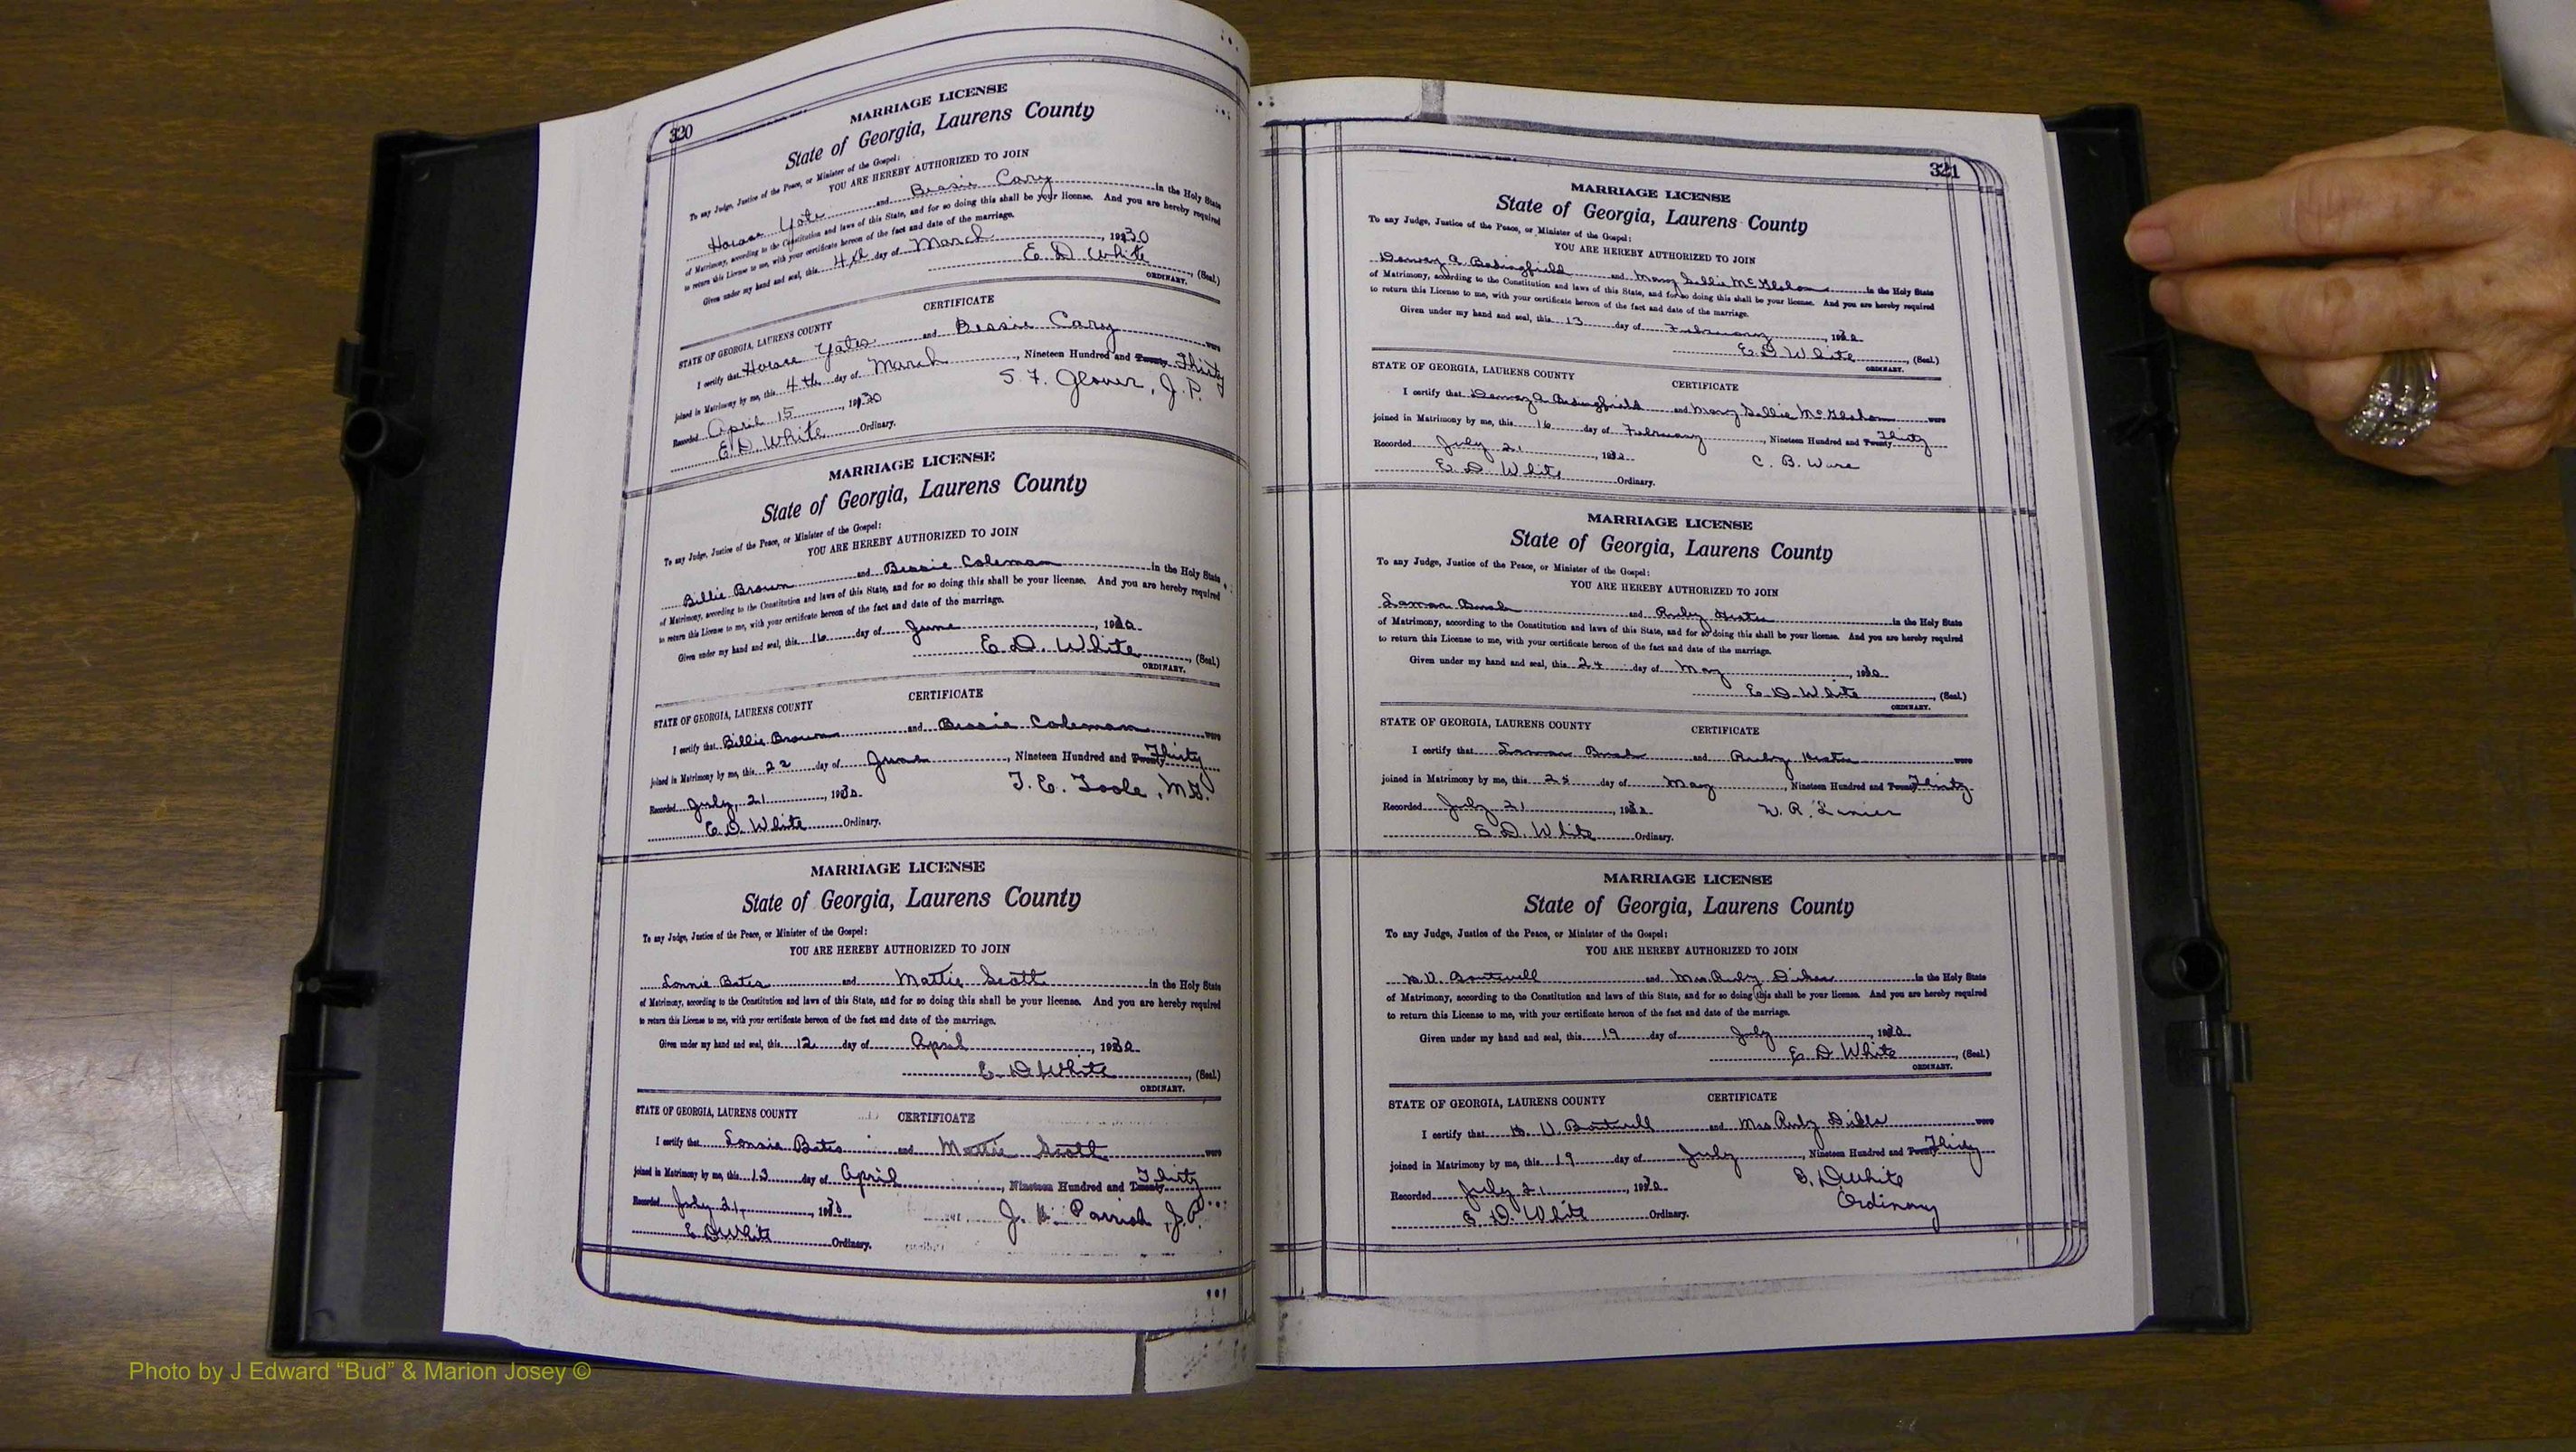 320
MARRIAGE LICENSE
State of Georgia, Laurens County
To any Judge, Justice of the Peace, or Minister of the Gospel:
YOU ARE HEREBY AUTHORIZED TO JOIN
Horace Yates and Bessie Cary in the Holy State
of Matrimony, according to the Constitution and laws of this State, and for so doing this shall be your license. And you are hereby required
to return this License to me, with your certificate hereon of the fact and date of the marriage.
Given under my hand and seal, this 4th day of March, 1930
E D White, (Seal.)
ORDINARY.
CERTIFICATE
STATE OF GEORGIA, LAURENS COUNTY
I certify that Horace Yates and Bessie Cary were
joined in Matrimony by me, this 4th day of March, Nineteen Hundred and Twenty Thirty
Recorded April 15, 1930 S. F. Glover, J. P.
E. D. White Ordinary.
MARRIAGE LICENSE
State of Georgia, Laurens County
To any Judge, Justice of the Peace, or Minister of the Gospel:
YOU ARE HEREBY AUTHORIZED TO JOIN
Billie Brown and Bessie Coleman in the Holy State
of Matrimony, according to the Constitution and laws of this State, and for so doing this shall be your license. And you are hereby required
to return this License to me, with your certificate hereon of the fact and date of the marriage.
Given under my hand and seal, this 16 day of June, 1930
E. D. White, (Seal.)
ORDINARY.
CERTIFICATE
STATE OF GEORGIA, LAURENS COUNTY
I certify that Billie Brown and Bessie Coleman were
joined in Matrimony by me, this 22 day of June, Nineteen Hundred and Twenty Thirty
Recorded July, 21, 1930 T. E. Toole, M.G.
E. D. White Ordinary.
MARRIAGE LICENSE
State of Georgia, Laurens County
To any Judge, Justice of the Peace, or Minister of the Gospel:
YOU ARE HEREBY AUTHORIZED TO JOIN
Lonnie Bates and Mattie Scott in the Holy State
of Matrimony, according to the Constitution and laws of this State, and for so doing this shall be your license. And you are hereby required
to return this License to me, with your certificate hereon of the fact and date of the marriage.
Given under my hand and seal, this 12 day of April, 1930
E. D White, (Seal.)
ORDINARY.
STATE OF GEORGIA, LAURENS COUNTY CERTIFICATE
I certify that Lonnie Bates and Mattie Scott were
joined in Matrimony by me, this 13 day of April, Nineteen Hundred and Twenty Thirty
Recorded July 21, 1930 J. Parrish, J.P.
E. D White Ordinary.
321
MARRIAGE LICENSE
State of Georgia, Laurens County
To any Judge, Justice of the Peace, or Minister of the Gospel:
YOU ARE HEREBY AUTHORIZED TO JOIN
A Bedingfield and Mary Sallie in the Holy State
of Matrimony, according to the Constitution and laws of this State, and for so doing this shall be your license. And you are hereby required
to return this License to me, with your certificate hereon of the fact and date of the marriage.
Given under my hand and seal, this 13 day of February, 1930
E. D White, (Seal.)
ORDINARY.
STATE OF GEORGIA, LAURENS COUNTY CERTIFICATE
I certify that A. Bedingfield and Mary Sallie were
joined in Matrimony by me, this 16 day of February, Nineteen Hundred and Twenty Thirty
Recorded July 21, 1930 C. B. Ware
E. D. White Ordinary.
MARRIAGE LICENSE
State of Georgia, Laurens County
To any Judge, Justice of the Peace, or Minister of the Gospel:
YOU ARE HEREBY AUTHORIZED TO JOIN
Lamar Bush and Ruby in the Holy State
of Matrimony, according to the Constitution and laws of this State, and for so doing this shall be your license. And you are hereby required
to return this License to me, with your certificate hereon of the fact and date of the marriage.
Given under my hand and seal, this 24 day of May, 1930
E. D. White, (Seal.)
ORDINARY.
STATE OF GEORGIA, LAURENS COUNTY CERTIFICATE
I certify that Lamar Bush and Ruby were
joined in Matrimony by me, this day of May, Nineteen Hundred and Twenty Thirty
Recorded July 21, 1930 W. R. Lanier
E. D. White Ordinary.
MARRIAGE LICENSE
State of Georgia, Laurens County
To any Judge, Justice of the Peace, or Minister of the Gospel:
YOU ARE HEREBY AUTHORIZED TO JOIN
Boutwell and Mrs Ruby in the Holy State
of Matrimony, according to the Constitution and laws of this State, and for so doing this shall be your license. And you are hereby required
to return this License to me, with your certificate hereon of the fact and date of the marriage.
Given under my hand and seal, this 19 day of July, 1930
E. D White, (Seal.)
ORDINARY.
STATE OF GEORGIA, LAURENS COUNTY CERTIFICATE
I certify that Boutwell and Mrs Ruby were
joined in Matrimony by me, this 19 day of July, Nineteen Hundred and Twenty Thirty
Recorded July 21, 1930 E. D White
E. D. White Ordinary. Ordinary
Photo by J Edward “Bud” & Marion Josey ©